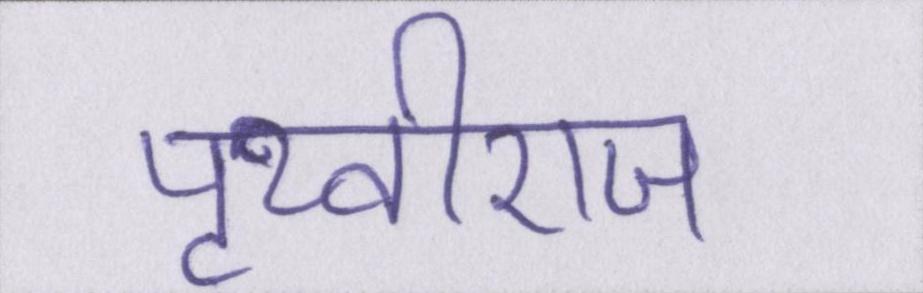 पृथ्वीराज